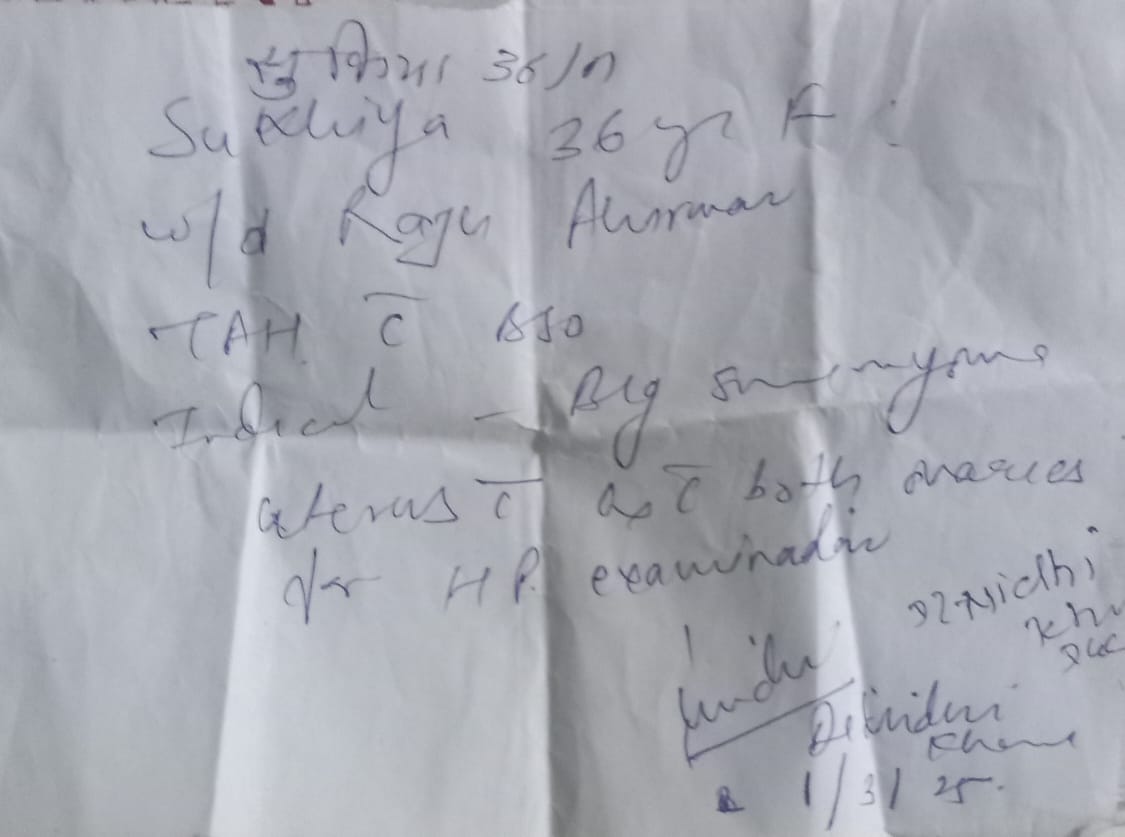 सुखिया 36/F
Sukhiya 36 yr F
w/d Raju Ahirwar
TAH c̄ BSO
Indicat – Big
uterus c̄ c̄ both ovaries
for H.P. examination
Dr Nidhi
Dr Nidhi
Khare
1/3/25.